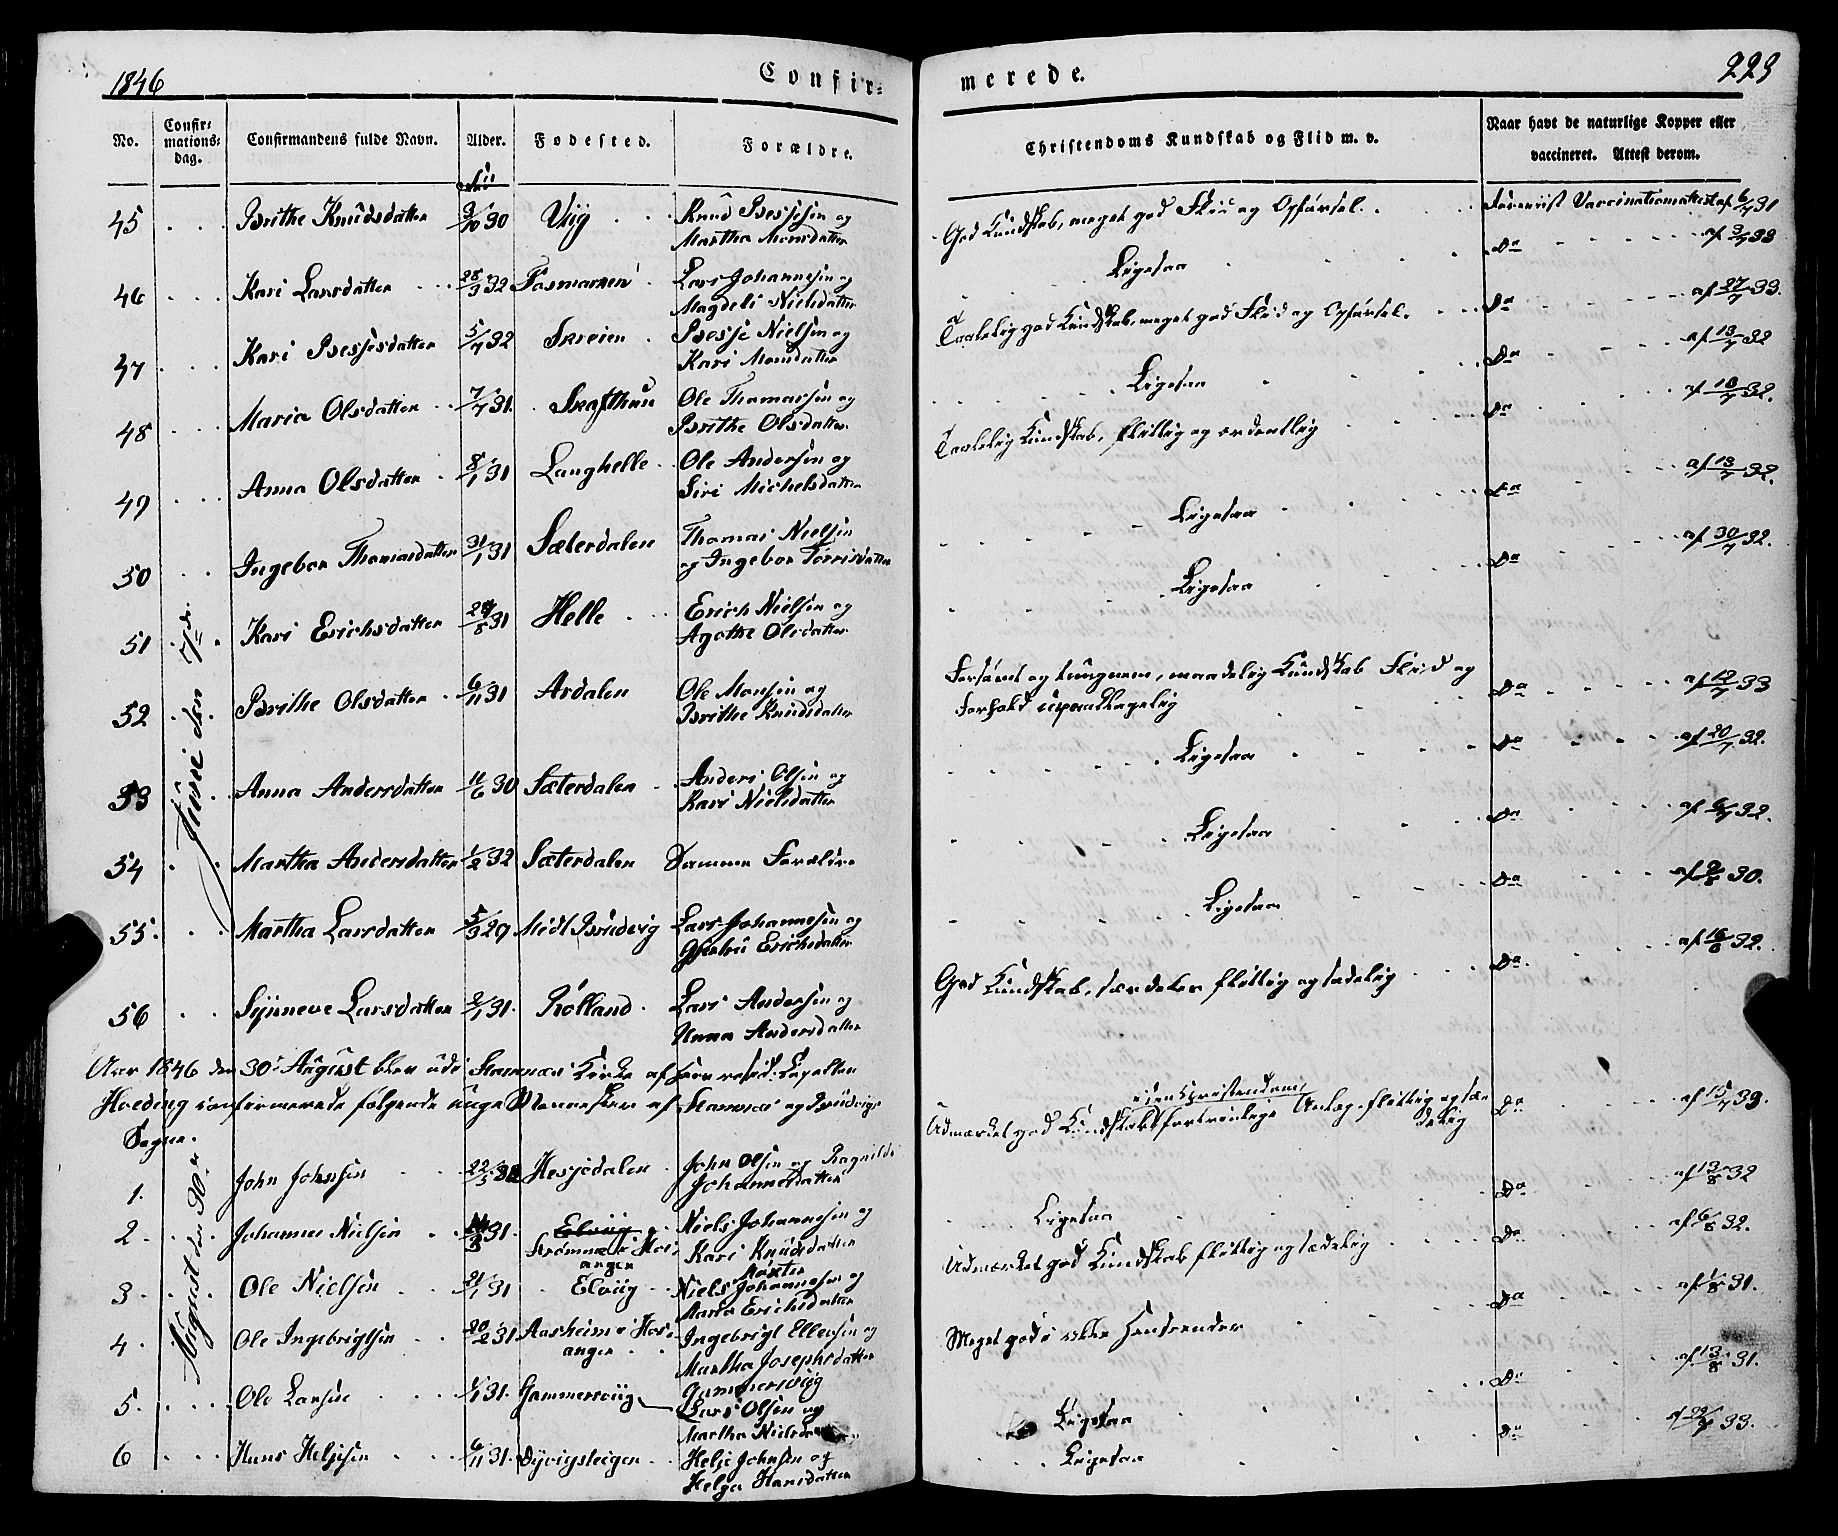 1846
Confir=
merede.
223
No.
Confir=
mations=
dag.
Confirmandens fulde Navn.
Alder.
Fødested.
Forældre.
Christendoms Kundskab og Flid m. v.
Naar havt de naturlige Kopper eller
vaccineret. Attest derom.
45 Brithe Knudsdatter 3/10 30 Viig Knud Bessesen og
Martha Monsdatter
God Kundskab, meget god Flid og Opførsel. Foreviist Vaccinationsattest af 6/7 31
46 Kari Larsdatter 28/3 32 Fosmarken Lars Johannesen og
Magdeli Nielsdatter
Ligesaa Do af 3/7 33
47 Kari Bessesdatter 5/7 32 Skreien Besse Nielsen og
Kari Monsdatter
Taalelig god Kundskab, meget god Flid og Opførsel. Do af 27/7 33.
48 Maria Olsdatter 7/7 31. Skafthun Ole Thomassen og
Brithe Olsdatter
Ligesaa Do af 13/7 32
49 Anna Olsdatter 8/1 31 Langhelle Ole Andersen og
Siri Michelsdatter
Taalelig Kundskab, flittig og ordentlig Do af 18/7 32.
50 Ingebor Thomasdatter 31/1 31 Sæterdalen Thomas Nielsen
og Ingebor Torrisdatter
Ligesaa Do af 13/7 32.
51 Kari Erichsdatter 29/8 31 Helle Erich Nielsen og
Agothe Olsdatter
Ligesaa Do af 30/7 32.
Juni den 7de
52 Brithe Olsdatter 6/11 31 Ardalen Ole Monsen og
Brithe Knudsdatter
Forsømt og tungnem, maadelig Kundskab Flid og
Forhold upaaklagelig Do af 12/7 33
53 Anna Andersdatter 11/6 30 Sæterdalen Anders Olsen og
Kari Nielsdatter
Ligesaa Do af 20/7 32.
54 Martha Andersdatter 1/2 32 Sæterdalen Samme Forældre
Ligesaa Do 32.
55. Martha Larsdatter 5/9 29 Midl Bruvig Lars Johannesen og
Gjertru Erichsdatter
Ligesaa Do af 2/8 30.
56 Synneve Larsdatter 2/1 31. Rolland Lars Andersen og
Anna Andersdatter
God Kundskab, særdeles flittig og sædelig Do af 16/6 32.
Aar 1846 den 30te August blev udi Stamnæs Kirke af
Hoeding confirmerede følgende unge Mennesker af Stamnæs og Bruvigs
Sogne.
August den 30te
1. John Johnsen 22/5 Hesjedalen John Olsen og Ragnilde
Johannesdatter
Udmærket god Kundskab fortrinlige Anlæg, flittig og sæ
delig Do af 15/7 33.
2 Johannes Nielsen 31. Elviig
Strømme i Hos
anger
Niels Johannesen og
Kari Knudsdatter
Ligesaa Do af 13/8 32
3 Ole Nielsen 21/1 31 Elviig Niels Johannesen og
Maria Erichsdatter
Udmærket god Kundskab flittig og sædelig Do af 6/8 32.
4 Ole Ingebrigtsen 20/2 31 Aasheim i Hos
anger
Ingebrigt Ellensen og
Martha Josephsdatter
Meget god i alle Henseender Do af 1/8 31.
5 Ole Larsen 31. Gammersviig Gammersviig
Lars Olsen og
Martha
Ligesaa Do af 13/8 31.
6 Hans Heljesen 6/11 31. Dyvigsteigen Helje Johnsen og
Helga Hansdatter
Ligesaa Do 33.